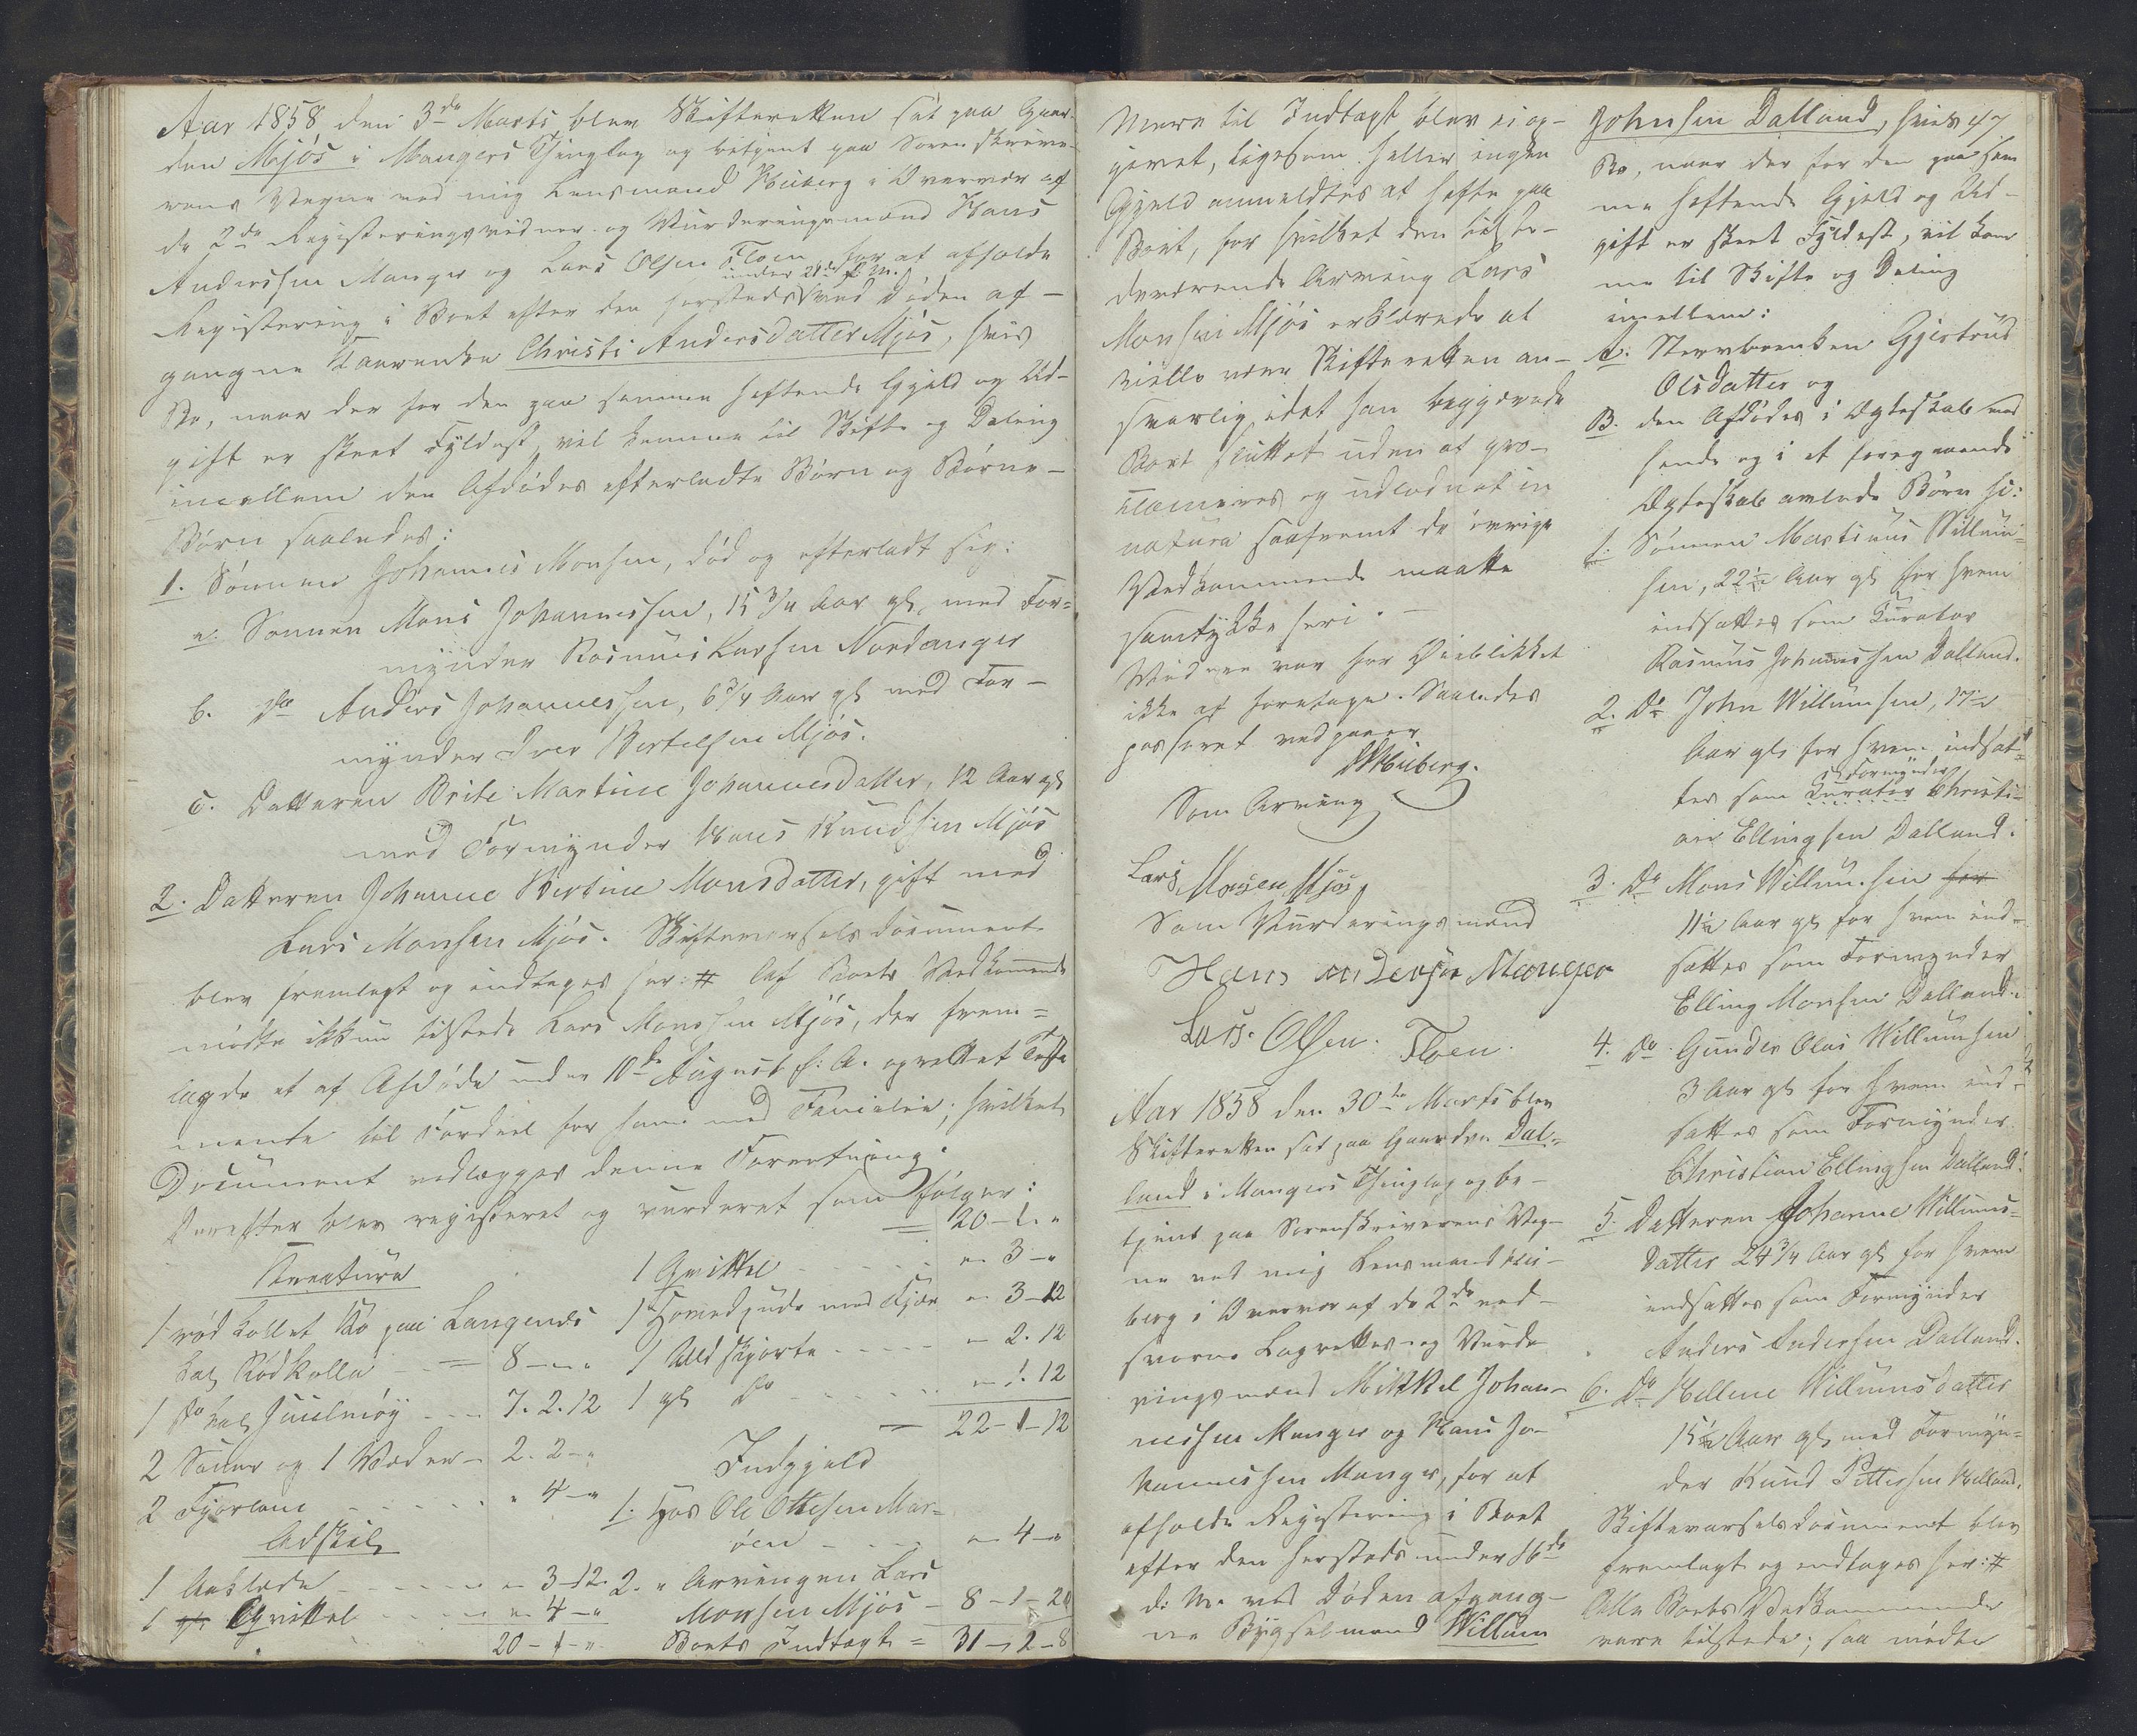 Aar 1858, den 3de Marts blev Skifteretten sat paa Gaar-
den Mjøs i Mangers Thinglag og betjent paa Sorenskrive-
rens Vegne ved mig Lensmand Heiberg i Overvær af
de 2de Registeringsvidner og Vurderingsmænd Hans
Anderssen Manger og Lars Olsen Floen for at afholde
under 21de f. M.
Registering i Boet efter den sammesteds ved Døden af-
gangne Kaarenke Christi Andersdatter Mjøs, hvis
Bo, naar der for den paa samme heftende Gjæld og Ud-
gift er skeet Fyldest, vil komme til Skifte og Deling
imellem den Afdødes efterladte Børn og Børne-
Børn saaledes:
1. Sønnen Johannes Monsen, død og efterladt sig:
a. Sønnen Mons Johannessen, 15 3/4 Aar gl. med For-
mynder Rasmus Larsen Nordanger
b. do Anders Johannessen, 6 3/4 Aar gl. med For-
mynder Iver Bertelsen Mjøs.
c. Datteren Brite Martine Johannesdatter, 12 Aar gl.
med Formynder Hans Knudsen Mjøs
2. Datteren Johanne Bertine Monsdatter, gift med
Lars Monsen Mjøs. Skiftevarselsdocument
blev fremlagt og indtages her: # Af Boets Vedkommende
mødte ikkun tilstede Lars Monssen Mjøs, der frem-
lagde et af Afdøde under 10de August f. A. oprettet Testa-
mente til Fordeel for ham med Familie; hvilket
Document vedlægges denne Forretning.
Derefter blev registeret og vurderet som følger:
Kreature
1 rød kollet Ko paa Langenes
kal. Rødkolla = 8 - " - "
1 do kal. Juulmøy 7. 2. 12
2 Sauer og 1 Væder - 2. 2 - "
2 Fjorlam " 4 - "
Adskil.
1 Aaklæde " - 3 - 12.
1 Qvittel " - 4 - "
20 - 1 - "
= 20 - 1. "
1 Qvittel " 3 - "
1 Hovedpude med Fjær " 3 - 12
1 Uldskjorte " 2. 12
1 gl. do " 1. 12
= 22 - 1 - 12
Indgjeld
1. Hos Ole Ottesen Mar-
øen " 4 - "
2. " Arvingen Lars
Monsen Mjøs - 8 - 1 - 20
Boets Indtægt = 31 - 2 - 8
Mere til Indtægt blev ei op-
givet, ligesom heller ingen
Gjæld anmeldtes at hefte paa
Boet, for hvilket den tilste-
deværende Arving Lars
Monsen Mjøs erklærede at
ville være Skifteretten an-
svarlig idet han begjærede
Boet sluttet uden at pro-
clameres og udlodnet in
natura saafremt de øvrige
Vedkommende maatte
samtykke heri. -
Videre var for Øieblikket
ikke at foretage. Saaledes
passeret vedgaaer
Heiberg.
Som Arving
Lars Monsen Mjøs
Som Vurderingsmænd
Hans Andersen Manger
Lars. Olsen. Floen.
Aar 1858 den 30te Marts blev
Skifteretten sat paa Gaarden Dal-
land i Mangers Thinglag og be-
tjent paa Sorenskriverens Veg-
ne ved mig Lensmand Hei-
berg i Overvær af de 2de ed-
svorne Lagrettes- og Vurde-
ringsmænd Mikkel Johan-
nessen Manger og Hans Jo-
hannessen Manger, for at
afholde Registering i Boet
efter den hersteds under 16de
d: M. ved Døden afgang-
ne Bygselmand Willum
Johnsen Dalland, hvis
Bo, naar der for den paa sam-
me heftende Gjæld og Ud-
gift er skeet Fyldest, vil kom-
me til Skifte og Deling
imellem:
A. Stervboenken Gjertrud
Olsdatter og
B. den Afdødes i Ægteskab med
hende og i et foregaaende
Ægteskab avlede Børn st:
1. Sønnen Martinus Willum-
sen, 22 1/2 Aar gl. for hvem
indsattes som Curator
Rasmus Johannessen Dalland.
2. Do John Willumsen, 17 1/2
Aar gl. for hvem indsat-
Formynder
tes som Curator Christi-
an Ellingsen Dalland.
3. Do Mons Willumsen for
11 1/2 Aar gl. for hvem ind-
sattes som Formynder
Elling Monsen Dalland.
4. Do Gunder Olai Willumsen
3 Aar gl. for hvem ind-
sattes som Formynder
Christian Ellingsen Dalland.
5. Datteren Johanne Willums-
datter 24 3/4 Aar gl. for hvem
indsattes som Formynder
Anders Andersen Dalland.
6. Do Hellene Willumsdatter
15 1/2 Aar gl. med Formyn-
der Knud Pettersen
Skiftevarselsdocument blev
fremlagt og indtages her: #
Alle Boets Vedkommende
vare tilstede; saa mødte